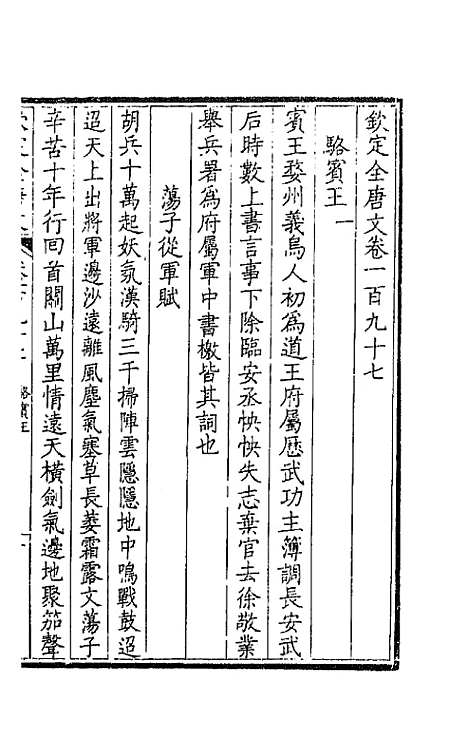 欽定全唐文卷一百九十七
駱賓王一
賓王婺州義烏人初爲道王府屬歷武功主簿調長安武
后時數上書言事下除臨安丞怏怏失志棄官去徐敬業
舉兵署爲府屬軍中書檄皆其詞也
蕩子從軍賦
胡兵十萬起妖氛漢騎三千掃陣雲隱隱地中鳴戰鼓迢
迢天上出將軍邊沙遠離風塵氣塞草長萎霜露文蕩子
辛苦十年行回首關山萬里情遠天橫劍氣邊地聚笳聲
駱賓王